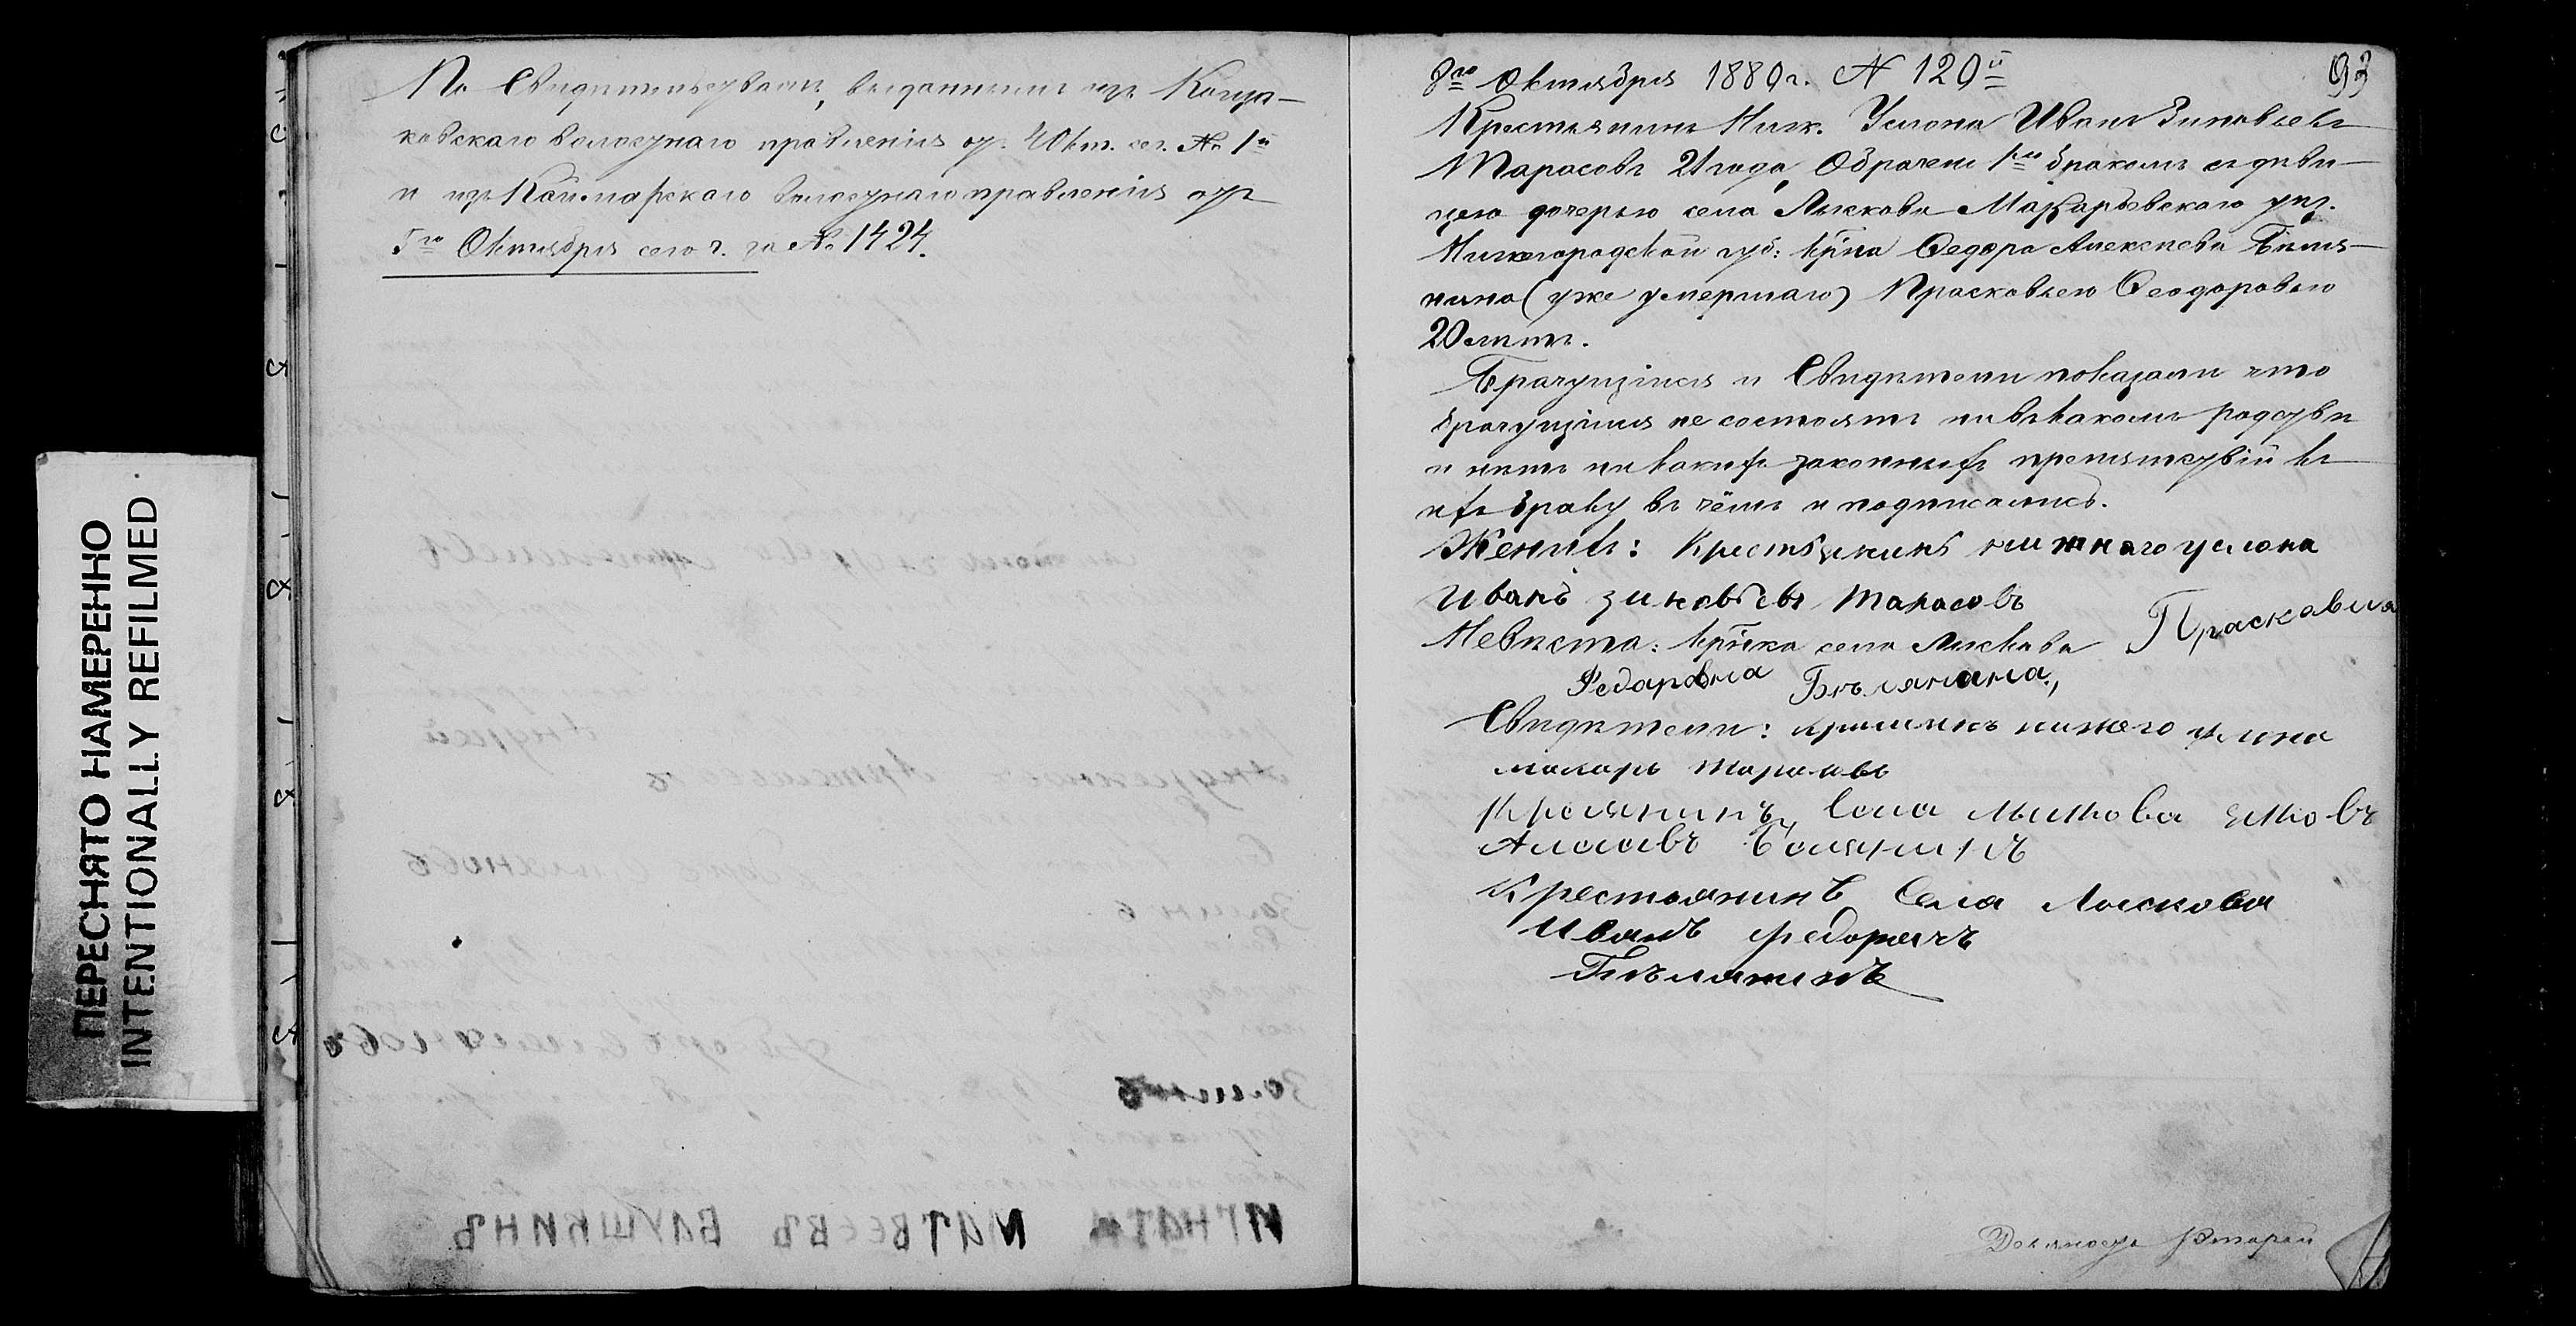 ПЕРЕСНЯТО НАМЕРЕННО
INTENTIONALLY REFILMED
По Свидѣтельствамъ, выданнымъ изъ
волостнаго правленія от. 4 Окт. сег. № 1й
и изъ Каймарскаго волостнаго правленія отъ
5го Октября сего г. за № 1424.
93
8го Октября 1889 г. № 129й
Крестьянинъ Ниж. Услона Иванъ Зиновьевъ
Тарасовъ 21 года, Обрачен 1мъ бракомъ съ дѣви-
цею дочерью села Лыскова Макарьевскаго уѣз.
Нижегородской губ: кр͠на Ѳедора Алексѣева Бѣля-
нина (уже умершаго) Прасковьею Ѳеодоровою
20 лѣтъ.
Брачущіися и Свидѣтели показали что
брачущіися не состоятъ ни въ какомъ родствѣ
и нѣтъ ни какихъ законныхъ препятствій къ
ихъ браку въ чёмъ и подписались.
Женихъ: Крестьянинъ нижнаго услона
Иванъ зиновьевъ Тарасовъ
Невѣста: кр͠нка села Лыскова Прасковия
Федаровна Бѣлянана,
Свидѣтели: нижнего услона
макаръ Тарасовъ
Села Лыскова
Крестьянинъ Села Лыскова
Иванъ федорычъ
Бѣлянинъ
ИГНАТИ МАТВЕЕВЪ БАУШКИНЪ